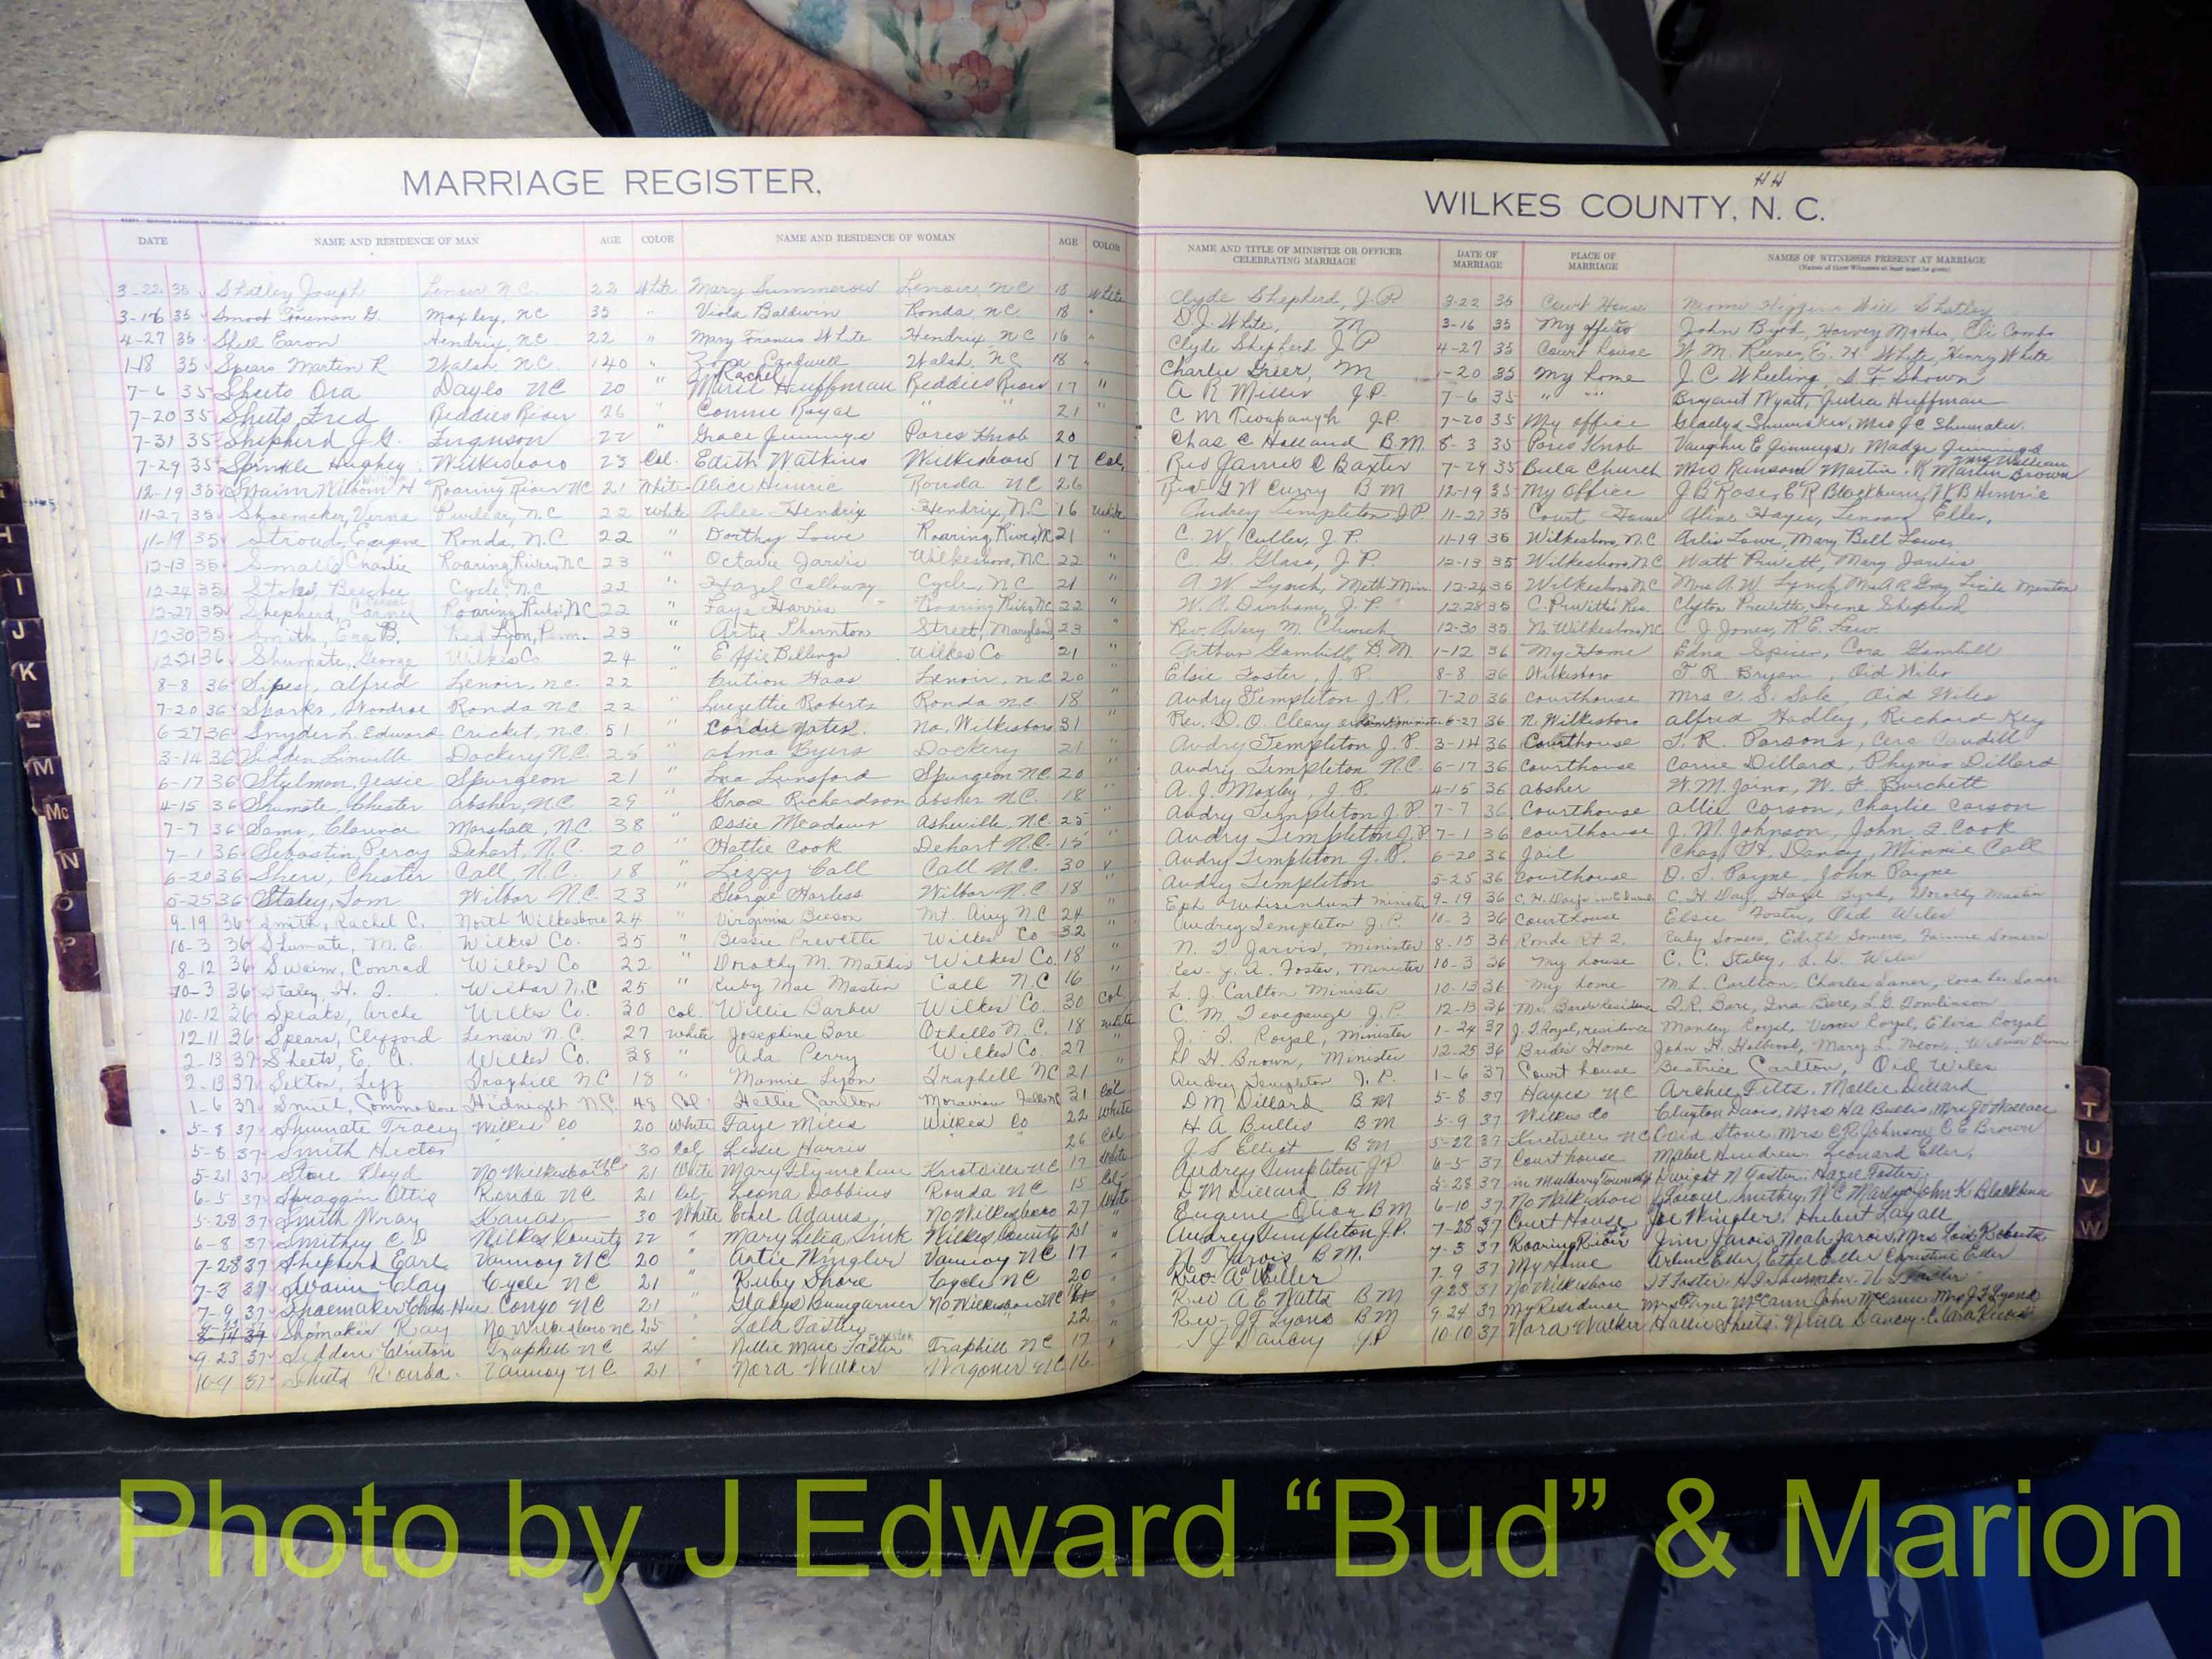 MARRIAGE REGISTER.
WILKES COUNTY, N. C.
DATE NAME AND RESIDENCE OF MAN AGE COLOR NAME AND RESIDENCE OF WOMAN AGE COLOR
NAME AND TITLE OF MINISTER OR OFFICER CELEBRATING MARRIAGE DATE OF MARRIAGE PLACE OF MARRIAGE NAMES OF WITNESSES PRESENT AT MARRIAGE
3-22 35 Shatley Joseph Lenoir N.C. 23 White Mary Summerow Lenoir, N.C 18 White Clyde Shepherd, J.P. 3-22 35 Court House
35 Smoot Freeman G. Moxley, NC 35 " Viola Baldwin Ronda N.C. 18 " D.J. White, M 3-16 35 My office John Byrd, Harvey Mathis, Eli Combs
4-27 35 Shell Earon Hendrix, NC 22 " Mary Francis White Hendrix, NC 16 " Clyde Shepherd J P 4-27 35 Court house W. M. Reeves, E. H. White, Henry White
1-18 35 Spears Martin R Walsh NC " Cardwell Walsh, NC 18 " Charlie Grier, M 1-20 35 My home J. C. Wheeling,
7-6 35 Sheets Ora Daylo NC 20 " Rachel Marie Hauffman Reddies River 17 " A R Miller J.P. 7-6 35 " " Bryant Wyatt, Julia Huffman
7-20 35 Sheets Fred Reddies River 26 " Connie Royal " " 21 " C M J.P. 7-20 35 My office Gladys Shumaker, Mrs J C Shumaker
7-31 35 Shepherd J.G. Ferguson 22 " Grace Jennings Pores Knob 20 Chas C Holland B.M. 8-3 35 Pores Knob Vaughn E Jennings, Madge Jennings
7-29 35 Sprinkle Hughey Wilkesboro 23 Col. Edith Watkins Wilkesboro 17 Col. Rev James C Baxter 7-29 35 Bula Church Mrs Ransom Martin, Martin Brown
12-19 35 Swaim H Roaring River NC 21 White Alice Ronda NC 26 Rev G W Curry B M 12-19 35 My Office J B Rose, E R Blackburn,
11-27 35 Shoemaker, Verne Purlear, N.C 22 White Hendrix Hendrix, N.C 16 White Audrey Templeton J P 11-27 35 Court House Aline Hayes, Eller.
11-19 35 Stroud, Ronda, N.C 22 " Dorthy Lowe Roaring River NC 21 " C. W. Culler, J. P. 11-19 35 Wilkesboro, N.C Arlis Lowe, Mary Bell Lowe
12-13 35 Charlie Roaring River, N.C 23 " Octavie Jarvis Wilkesboro, N.C. 22 " C. G. Glass, J. P. 12-13 35 Wilkesboro, N.C Watt Pruitt, Mary Jarvis
12-24 35 Cycle, N.C 22 " Hazel Calloway Cycle, N.C 21 " A. W. Lynch, Meth Min. 12-24 35 Wilkesboro N.C Mrs A. W. Lynch,
12-27 35 Shepherd, Roaring River, N.C 22 " Faye Harris Roaring River, N.C 22 " W. A. Durham, J. P. 12-28 35 C. Pruitt's Res. Clyton Pruitt, Irene Shepherd
12-30 35 Smith, B. Red Lyon, Penn. 23 " Artie Thornton Street, Maryland 23 " Rev. Avery M. Church 12-30 35 N. Wilkesboro, NC C J Jones, R. E. Faw
36 Shumate, George Wilkes Co 24 " Effie Billings Wilkes Co 21 " Arthur Gambill, B. M. 1-12 36 My Home Edna Spicer, Cora Gambill
8-8 36 Sipes, Alfred Lenoir, N.C. 22 " Haas Lenoir, N.C 20 Elsie Foster, J. P. 8-8 36 Wilkesboro T. R. Bryan, Oid Wiles
7-20 36 Sparks, Woodroe Ronda N.C 22 " Roberts Ronda NC 18 " Audry Templeton J. P. 7-20 36 Courthouse Mrs C. S. Sale, Oid Wiles
6-27 36 Snyder L. Edward Cricket, N.C. 51 " Cordie Yates No. Wilkesboro 31 Rev. D. O. Cleary 6-27 36 N. Wilkesboro Alfred Hadley, Richard Key
3-14 36 Sidden Linville Dockery N.C. 25 " Alma Byers Dockery 21 " Audry Templeton J. P. 3-14 36 Courthouse T. R. Parsons, Caudill
6-17 36 Jessie Spurgeon 21 " Lunsford Spurgeon N.C. 20 " Audry Templeton N.C. 6-17 36 Courthouse Carrie Dillard, Dillard
4-15 36 Shumate, Chester Absher, N.C. 29 " Grace Richardson Absher N.C. 18 " A. J. Moxley, J. P. 4-15 36 Absher W. M. W. F. Burchett
7-7 36 Sams, Clarence Marshall, N.C. 38 " Ossie Meadows Asheville, N.C. 25 " Audry Templeton J. P. 7-7 36 Courthouse Allie Carson, Charlie Carson
7-1 36 Sebastin, Percy Dehart, N.C. 20 " Hattie Cook Dehart N.C. 15 Audry Templeton J. P 7-1 36 Courthouse J. M. Johnson, John Cook
6-20 36 Chester Call, N.C. 18 " Lizzy Call Call N.C. 30 Audry Templeton J. P. 6-20 36 Jail Chas. H. Dancy, Minnie Call
36 Staley, Tom Wilbar N.C. 23 " Georgie Harless Wilbar N.C 18 " Audry Templeton 5-25 36 Courthouse D. T. Payne, John Payne
9-19 36 Smith, Rachel C. North Wilkesboro 24 " Virginia Beeson Mt. Airy N.C 24 " Minister 9-19 36 C. H. Day, Hazel Byrd, Dorothy
10-3 36 Shumate, M. E. Wilkes Co. 35 " Bessie Prevette Wilkes Co 32 Audrey Templeton J. P 10-3 36 Courthouse Elsie Foster, Oid Wiles
8-12 36 Swaim, Conrad Wilkes Co 22 " Dorothy M. Mathis Wilkes Co. 18 " N. T. Jarvis, Minister 8-15 36 Ronda Rt 2. Ruby Somers, Edith Somers, Fannie Somers
10-3 36 Staley, H. J. Wilbar N.C 25 " Ruby Mae Masten Call N.C 16 " Rev. J. A. Foster, Minister 10-3 36 My house C. C. Staley, Wiles
10-12 36 Speaks, Arche Wilkes Co. 30 Col. Willie Barber Wilkes Co. 30 Col L. J. Carlton Minister 10-13 36 My home M. L. Carlton, Charles Saner,
12 11 36 Spears, Clifford Lenoir N.C. 27 White Josephine Bare Othello N.C. 18 White C. M. J. P. 12-13 36 Mr. Bare's Residence T. R. Bare, Ina Bare, L. G. Tomlinson
2-13 37 Sheets, E. A. Wilkes Co. 38 " Ada Perry Wilkes Co 27 J. T. Royal, Minister 1-24 37 J. T. Royal, residence Manley Royal, Royal, Elvia Royal
37 Sexton, Traphill N.C 18 " Mamie Lyon Traphill N.C 21 " H. Brown, Minister 12-25 36 Brides Home John H. Holbrook,
1-6 37 Smith, Commodore Midnight N.C. 48 Col. Hallie Carlton Moravian Falls NC 31 Col Audrey Templeton J. P. 1-6 37 Court house Beatrice Carlton, Oid Wiles
5-8 37 Shumate Tracey Wilkes Co 20 White Faye Miles Wilkes Co 22 White D M Dillard B M 5-8 37 Hayes NC Archie Fitts. Mollie Dillard
5-8 37 Smith Hector 30 Col Lessie Harris 26 Col H A Bullis B M 5-9 37 Wilkes Co Clayton Davis, Mrs H A Bullis, Mrs Wallace
5-21 37 Stone Floyd No Wilkesboro NC 21 White Mary Knotville NC 17 White J S Elliot B M 5-22 37 Knotville NC David Stone, Mrs C R Johnson, C E Brown
6-5 37 Spraggin Ottie Ronda NC 21 Col. Leona Dobbins Ronda NC 15 Col. Audrey Templeton J P 6-5 37 Court house Mabel Hendren, Leonard Eller.
5-28 37 Smith Wray 30 White Ethel Adams No Wilkesboro 27 White D M Dillard B M 5-28 37 in Mulberry Township Dwight N Foster, Hazel Foster
6-8 37 Smithey C D Wilkes County 22 " Mary Lelia Sink Wilkes County 21 " Eugene Olive B M 6-10 37 No Wilkesboro Smithey,
7-28 37 Shepherd Earl Vannoy NC 20 " Artie Wingler Vannoy NC 17 " Audrey Templeton J.P. 7-28 37 Court House Joe Wingler, Hubert Layall
7-3 37 Swaim Clay Cycle NC 21 " Ruby Shore Cycle NC 20 " N T Jarvis B M. 7-3 37 Roaring River Jim Jarvis, Noah Jarvis, Mrs Roberts
7-9 37 Shoemaker Congo NC 21 " Gladys Bumgarner No Wilkesboro NC Rev. A W Eller 7-9 37 My Home Arlene Eller, Ethel Eller Christine Eller
Shomaker Ray No Wilkesboro NC 25 Lola Foster 22 " Rev A E Watts B M No Wilkesboro
9 23 37 Sidden Clinton Traphill NC 24 " Nellie Marie Traphill NC 17 " Rev. J F Lyons B M 9 24 37 My Residence John McCann
37 Sheets Vannoy NC 21 " Nora Walker Wagoner NC 16 " T J Dancy J P 10 10 37 Nora Walker Hallie Sheets. Nina Dancy.
H
I
J
K
L
M
Mc
N
O
P
T
U
V
W
Photo by J Edward “Bud” & Marion